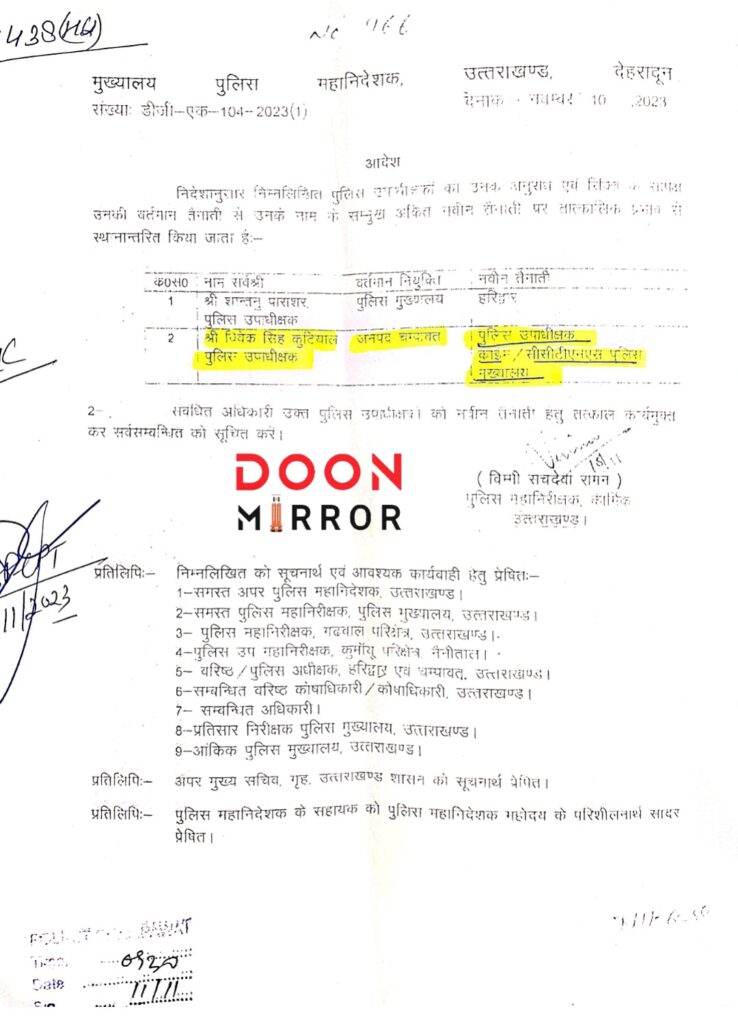 438(HQ)
NC 466
मुख्यालय पुलिस महानिदेशक, उत्तराखण्ड, देहरादून
संख्याः डीजी–एक–104–2023(1) नवम्बर 10 ,2023
आदेश
निदेशानुसार निम्नलिखित पुलिस एवं
उनकी वर्तमान तैनाती से उनके नाम के सम्मुख अंकित नवीन तैनाती पर तात्कालिक प्रभाव से
स्थानान्तरित किया जाता हैः–
क0स0 नाम सर्वश्री वर्तमान नियुक्ति नवीन तैनाती
1 श्री शान्तनु पाराशर, पुलिस मुख्यालय हरिद्वार
पुलिस उपाधीक्षक
2 श्री विवेक सिंह कुटियाल जनपद चम्पावत पुलिस उपाधीक्षक
पुलिस उपाधीक्षक क्राइम/सीसीटीएनएस पुलिस
मुख्यालय
2– संबंधित अधिकारी उक्त पुलिस उपाधीक्षकों को नवीन तैनाती हेतु तत्काल कार्यमुक्त
कर सर्वसम्बन्धित को सूचित करें।
DOON
MIRROR
(विम्मी सचदेवा रामन)
पुलिस महानिरीक्षक, कार्मिक
उत्तराखण्ड।
11/2023
प्रतिलिपिः– निम्नलिखित को सूचनार्थ एवं आवश्यक कार्यवाही हेतु प्रेषितः–
1–समस्त अपर पुलिस महानिदेशक, उत्तराखण्ड।
2–समस्त पुलिस महानिरीक्षक, पुलिस मुख्यालय, उत्तराखण्ड।
3– पुलिस महानिरीक्षक, गढवाल परिक्षेत्र, उत्तराखण्ड।
4–पुलिस उप महानिरीक्षक, कुमॉयू परिक्षेत्र, नैनीताल।
5– वरिष्ठ/पुलिस अधीक्षक, हरिद्वार एवं चम्पावत, उत्तराखण्ड।
6–सम्बन्धित वरिष्ठ कोषाधिकारी/कोषाधिकारी, उत्तराखण्ड।
7– सम्बन्धित अधिकारी।
8–प्रतिसार निरीक्षक पुलिस मुख्यालय, उत्तराखण्ड।
9–आंकिक पुलिस मुख्यालय, उत्तराखण्ड।
प्रतिलिपिः– अपर मुख्य सचिव, गृह, उत्तराखण्ड शासन को सूचनार्थ प्रेषित।
प्रतिलिपिः– पुलिस महानिदेशक के सहायक को पुलिस महानिदेशक महोदय के परिशीलनार्थ सादर
प्रेषित।
Date 11/11